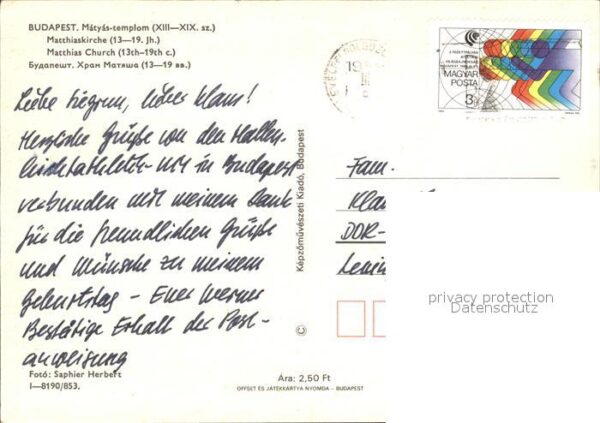 BUDAPEST. Mátyás-templom (XIII—XIX. sz.)
Matthiaskirche (13—19. Jh.)
Matthias Church (13th–19th c.)
Будапешт. Храм Матяша (13—19 вв.)
Liebe Siegrun, lieber Klaus!
Herzliche Grüße von den Hallen-
leichtathletik-WM in Budapest
verbunden mit meinem Dank
für die freundlichen Grüße
und Wünsche zu meinem
Geburtstag – Euer Werner
Bestätige Erhalt der Post-
anweisung
Fotó: Saphier Herbert
I—8190/853.
Képzőművészeti Kiadó, Budapest
©
MAGYAR
POSTA
3
Fam.
Kla
DDR-
Lenin
privacy protection
Datenschutz
Ára: 2,50 Ft
OFFSET ÉS JÁTÉKKÁRTYA NYOMDA – BUDAPEST